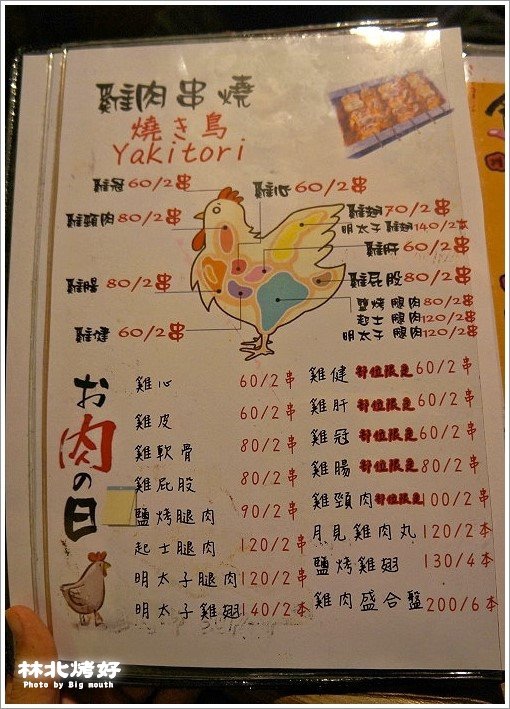 雞肉串燒
燒き鳥
Yakitori
雞冠 60/2串
雞心 60/2串
雞頸肉 80/2串
雞翅 70/2串
明太子 雞翅 140/2本
雞肝 60/2串
雞腸 80/2串
雞屁股 80/2串
鹽烤 腿肉 80/2串
起士 腿肉 120/2串
明太子 腿肉 120/2串
雞健 60/2串
お肉の日
雞心 60/2串
雞皮 60/2串
雞軟骨 80/2串
雞屁股 80/2串
鹽烤腿肉 90/2串
起士腿肉 120/2串
明太子腿肉 120/2串
明太子雞翅 140/2本
雞健 部位限定 60/2串
雞肝 部位限定 60/2串
雞冠 部位限定 60/2串
雞腸 部位限定 80/2串
雞頸肉 部位限定 100/2串
月見雞肉丸 120/2本
鹽烤雞翅 130/4本
雞肉盛合盤 200/6本
林北烤好
Photo by Big mouth